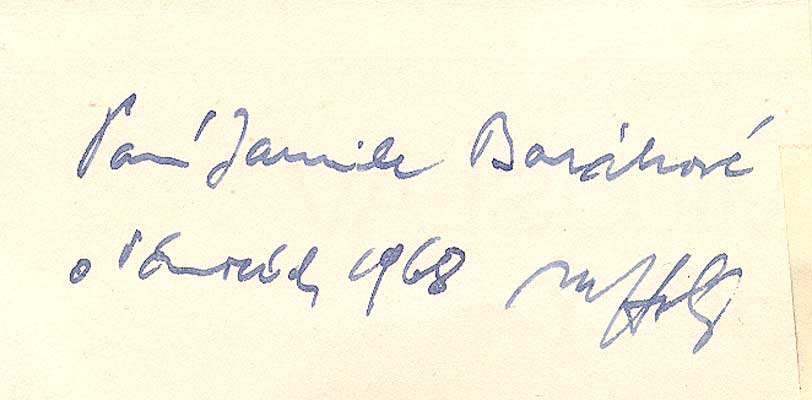 Paní Jarmile Barákové
o Vánocích 1968